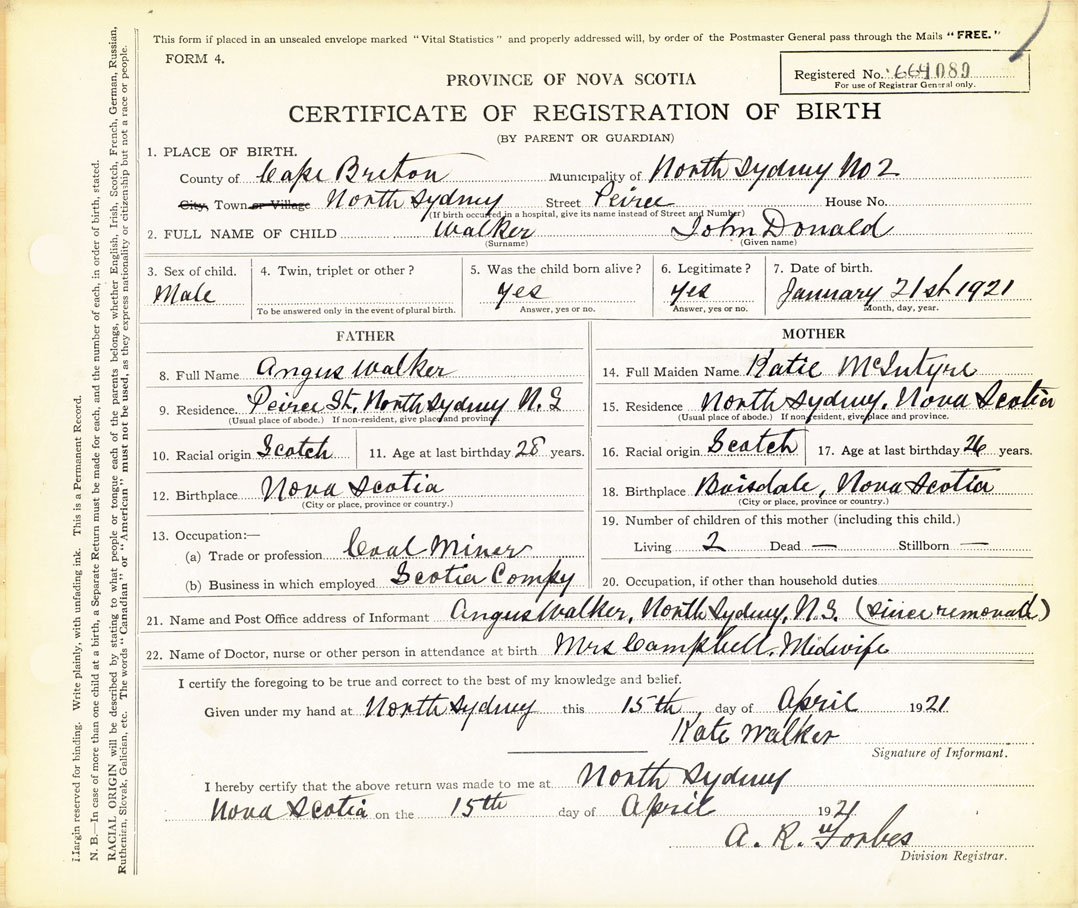 This form if placed in an unsealed envelope marked "Vital Statistics" and properly addressed will, by order of the Postmaster General pass through the Mails "FREE."
FORM 4.
Registered No. 664089
For use of Registrar General only.
PROVINCE OF NOVA SCOTIA
CERTIFICATE OF REGISTRATION OF BIRTH
(BY PARENT OR GUARDIAN)
1. PLACE OF BIRTH.
County of Cape Breton Municipality of North Sydney No 2
City, Town or Village North Sydney Street Peirce House No.
(If birth occurred in a hospital, give its name instead of Street and Number)
2. FULL NAME OF CHILD Walker John Donald
(Surname) (Given name)
3. Sex of child. 4. Twin, triplet or other? 5. Was the child born alive? 6. Legitimate? 7. Date of birth.
Male yes yes January 21st 1921
To be answered only in the event of plural birth. Answer, yes or no. Answer, yes or no. Month, day, year.
FATHER
8. Full Name Angus Walker
9. Residence. Peirce St. North Sydney N.S
(Usual place of abode.) If non-resident, give place and province.
10. Racial origin Scotch 11. Age at last birthday 28 years.
12. Birthplace Nova Scotia
(City or place, province or country.)
13. Occupation:—
(a) Trade or profession Coal Miner
(b) Business in which employed Scotia Compy
MOTHER
14. Full Maiden Name Katie McIntyre
15. Residence North Sydney, Nova Scotia
(Usual place of abode.) If non-resident, give place and province.
16. Racial origin Scotch 17. Age at last birthday 26 years.
18. Birthplace Boisdale, Nova Scotia
(City or place, province or country.)
19. Number of children of this mother (including this child.)
Living 2 Dead — Stillborn —
20. Occupation, if other than household duties
21. Name and Post Office address of Informant Angus Walker, North Sydney, N.S. (since removed)
22. Name of Doctor, nurse or other person in attendance at birth Mrs Campbell. Midwife
I certify the foregoing to be true and correct to the best of my knowledge and belief.
Given under my hand at North Sydney this 15th day of April 1921
Kate Walker
Signature of Informant.
I hereby certify that the above return was made to me at North Sydney
Nova Scotia on the 15th day of April 1921
A. R. Forbes
Division Registrar.
Margin reserved for binding. Write plainly, with unfading ink. This is a Permanent Record.
N. B.—In case of more than one child at a birth, a Separate Return must be made for each, and the number of each, in order of birth, stated.
RACIAL ORIGIN will be described by stating to what people or tongue each of the parents belongs, whether English, Irish, Scotch, French, German, Russian,
Ruthenian, Slovak, Galician, etc. The words "Canadian" or "American" must not be used, as they express nationality or citizenship but not a race or people.